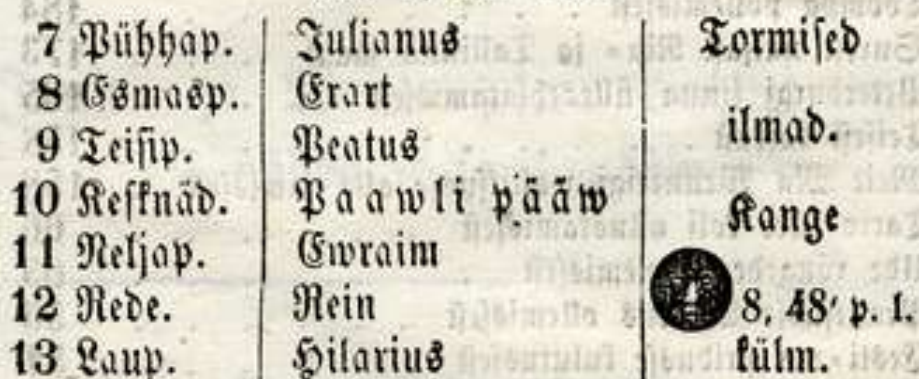 7 Pühhap. Julianus Tormised
8 Esmasp. Erart
ilmad.
9 Teisip. Peatus
10 Kesknäd. Paawli pääw Kange
11 Neljap. Ewraim
12 Rede. Rein 8, 48' p. l.
13 Laup. Hilarius külm.